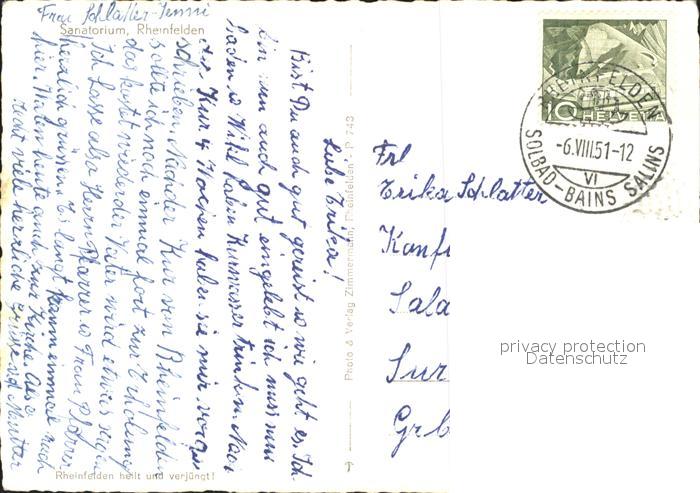 Frau Schlatter-Jenni
Sanatorium, Rheinfelden
Liebe Erika!
Bist Du auch gut gereist u wie geht es. Ich
bin nun auch gut eingelebt ich muss nun
baden u Vital haben Kurwasser trinken. Nun
die Kur 4 Wochen haben sie mir vorge
schrieben. Nach der Kur von Rheinfelden
sollte ich noch einmal fort zur Erholung
das kostet wieder der Vater wird etwas sagen
Ich lasse also Herrn Pfarrer u Frau Pfarrer
herzlich grüssen. Es langt kaum einmal nach
hier. Waren heute auch zur Kirche. Also
recht viele herrliche Grüsse v d Mutter
Rheinfelden heilt und verjüngt!
Photo & Verlag Zimmermann, Rheinfelden P 243
Frl
Erika Schlatter
Konf
Sala
Sur
Grb
10 HELVETIA
RHEINFELDEN
-6.VIII.51-12
VI
SOLBAD-BAINS SALINS
privacy protection
Datenschutz